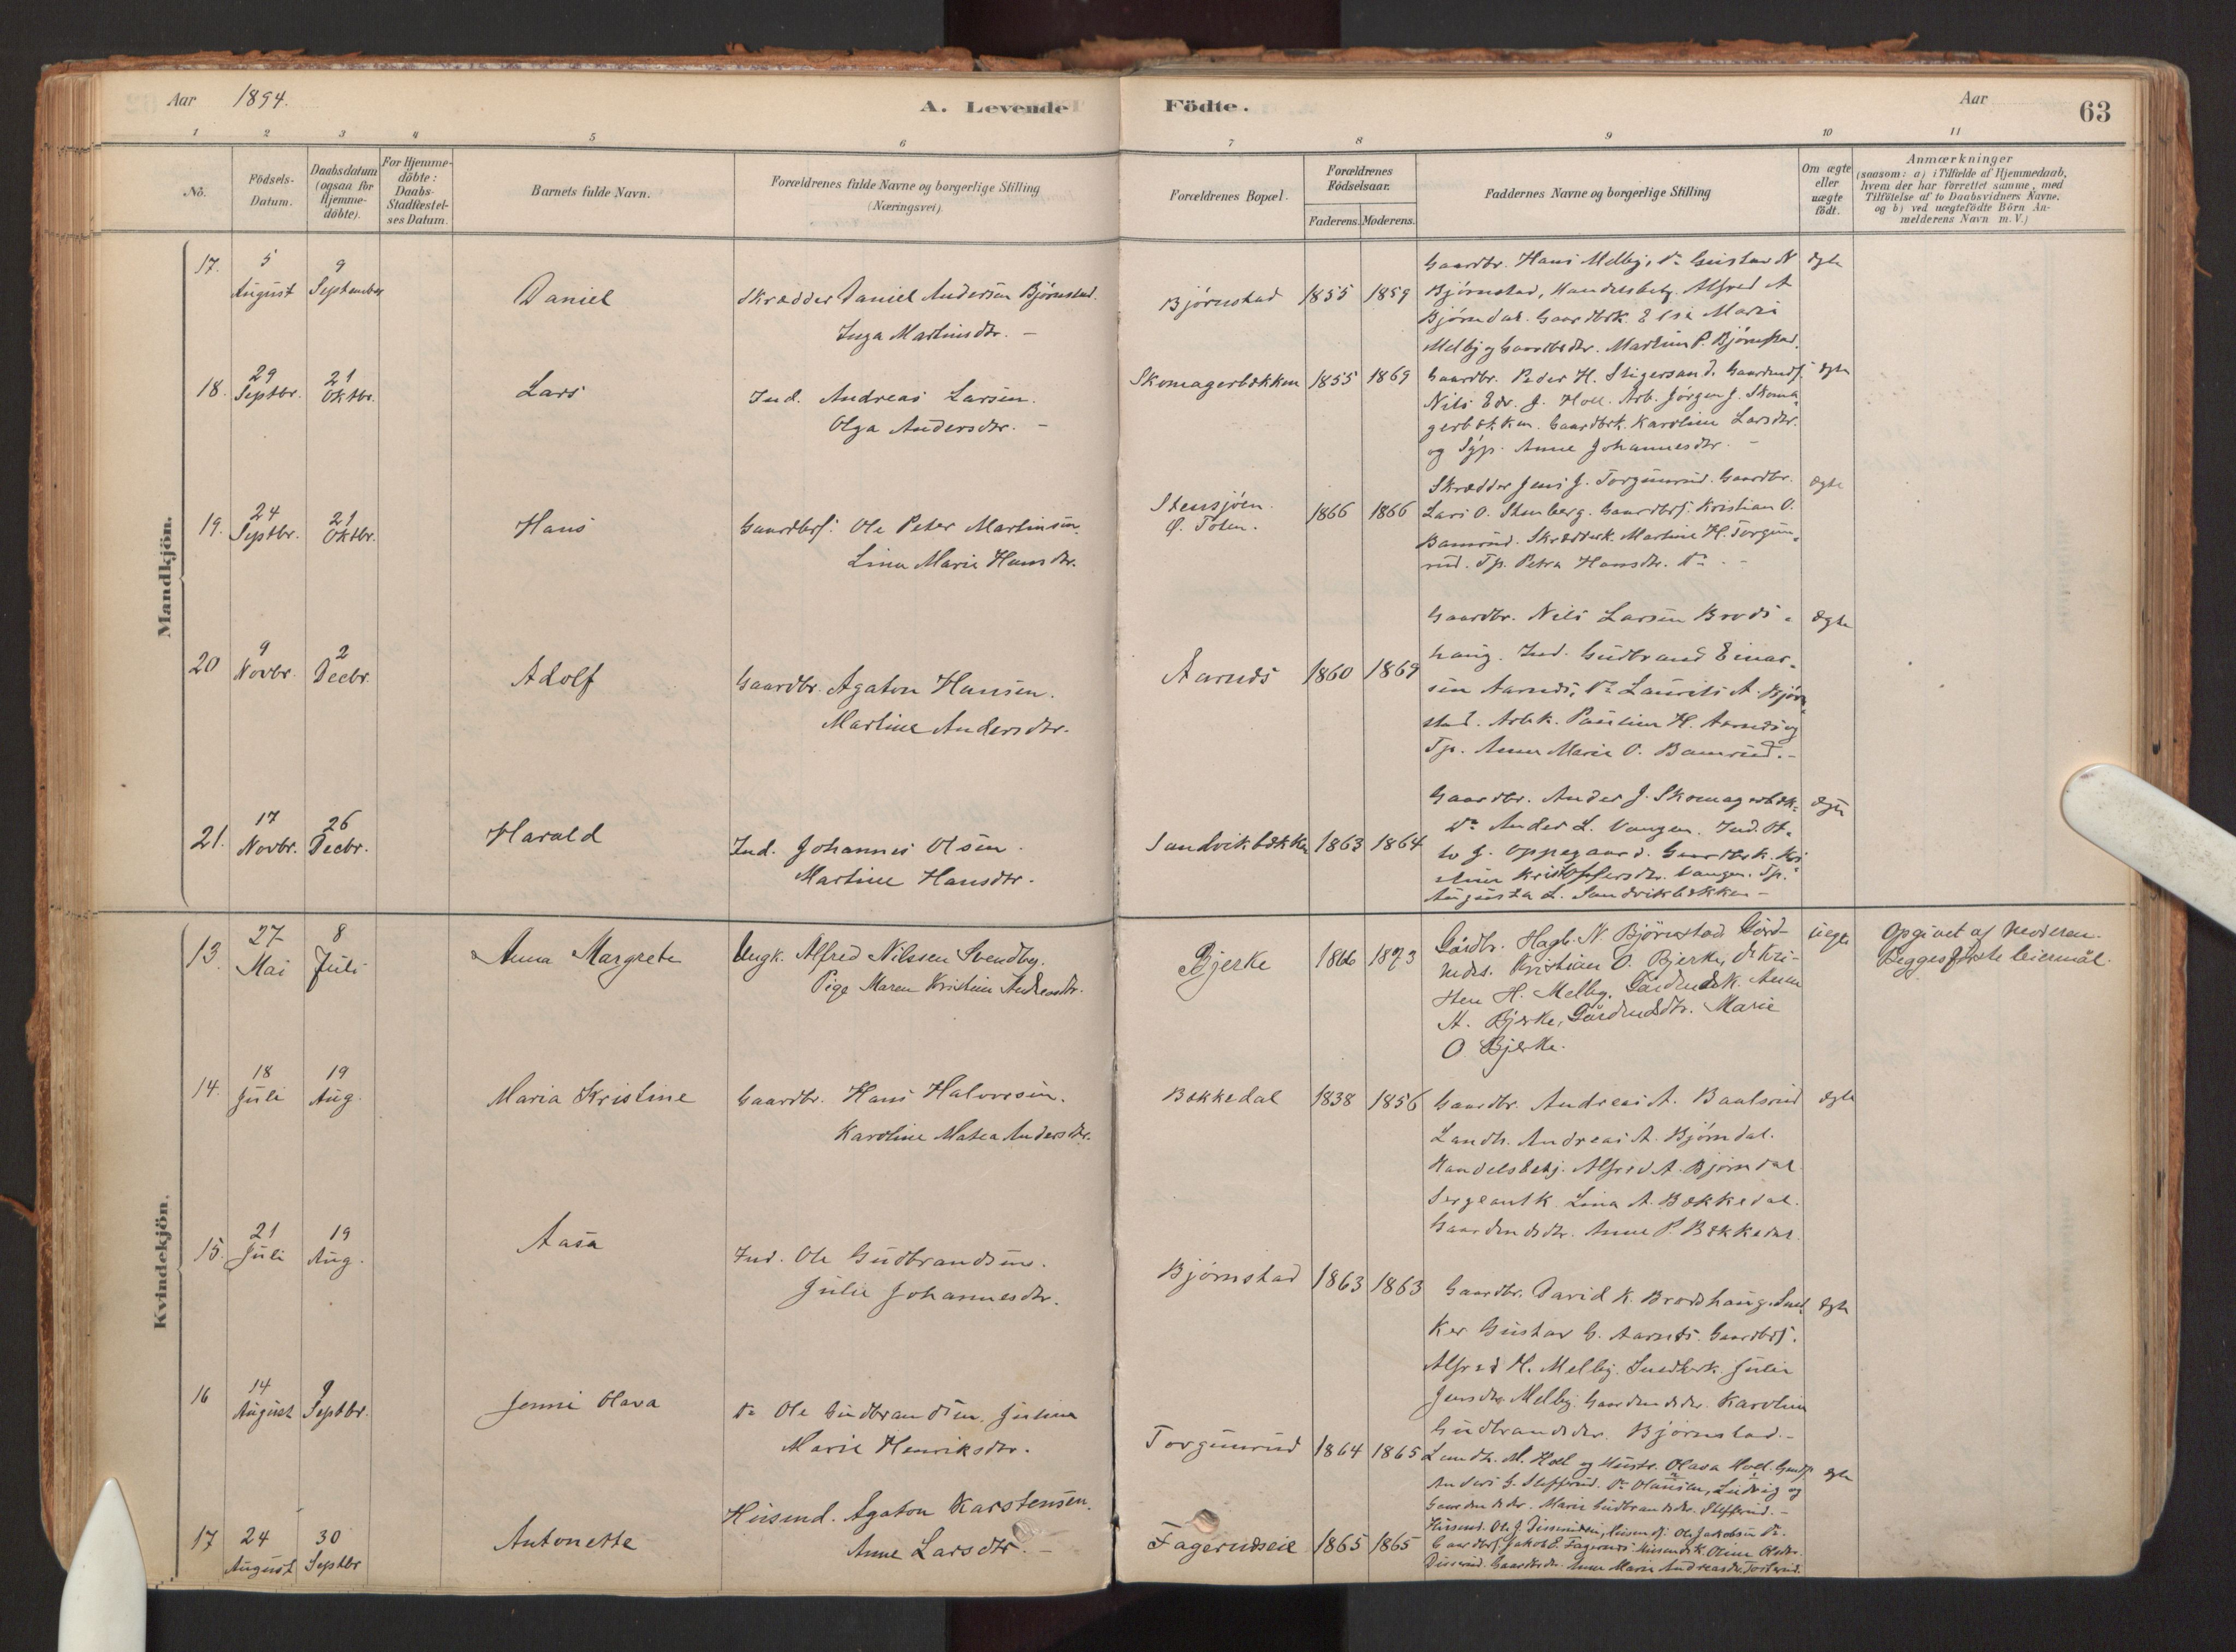 Aar 1894.
A. Levende Födte.
Aar
63
1 2 3 4 5 6 7 8 9 10 11
Nô.
Födsels-Datum.
Daabsdatum (ogsaa for Hjemme-döbte).
For Hjemme-döbte: Daabs-Stadfæstel-ses Datum.
Barnets fulde Navn.
Forældrenes fulde Navne og borgerlige Stilling (Næringsvei).
Forældrenes Bopæl.
Forældrenes Födselsaar.
Faderens. Moderens.
Faddernes Navne og borgerlige Stilling
Om ægte eller uægte födt.
Anmærkninger
(saasom: a) i Tilfælde af Hjemmedaab, hvem der har forrettet samme, med Tilföielse af to Daabsvidners Navne, og b) ved uægtefödte Börn An-melderens Navn m. V.)
Mandkjön.
17. 5 August 9 September Daniel
Skrædder Daniel Andersen Bjørnstad.
Inga Martinsdtr. -
Bjørnstad 1855 1859
Gaardbr. Hans Melby, do Gustav N
Bjørnstad, Handelsbetj. Alfred A
Bjørndal. Gaardbrk. Else Marie
Melby og Gaardbrdtr. Martine P. Bjørnstad.
ægte
18. 29 Septbr. 21 Oktbr. Lars
Ind. Andreas Larsen.
Olga Andersdtr. -
Skomagerbækken 1855 1869
Gaardbr. Peder H. Stigersand. Gaardmds.
Nils Edv. J. Hoel. Arb. Jørgen J. Skoma-
gerbækken. Gaardbrk. Karoline Larsdtr.
og Syp. Anne Johannesdtr. -
ægte
19. 24 Septbr. 21 Oktbr. Hans
Gaardbrs. Ole Peter Martinsen.
Lina Marie Hansdtr.
Stensjøen.
Ø. Toten.
1866 1866
Skrædder Jens J. Torgunrud. Gaardbr.
Lars O. Stenberg. Gaardbrs. Kristian O.
Bamrud. Skrædderk. Martine H. Torgun-
rud. Tp. Petra Hansdtr. do -
ægte
20 9 Novbr. 2 Decbr. Adolf
Gaardbr. Agaton Hansen.
Martine Andersdtr.
Aarnds 1860 1869
Gaardbr. Nils Larsen Brods-
haug. Ind. Gudbrand Einar-
sen Aarnds, do Laurits A. Bjørn-
stad. Arbk. Pauline H. Aarnds og
Tp. Anne Marie O. Bamrud. -
ægte
21. 17 Novbr. 26 Decbr. Harald
Ind. Johannes Olsen.
Martine Hansdtr.
Sandvikbækken 1863 1864
Gaardbr. Anders J. Skomagerbæk-
do Anders L. Vangen. Ind. Ot-
to J. Oppegaard. Gaardbrk. Kri-
stine Kristoffersdtr. Vangen. Tp.
Augusta L. Sandvikbækken -
ægte
Kvindekjön.
13. 27 Mai 8 Juli Anna Margrete
Ungk. Alfred Nilssen Svendby.
Pige Maren Kristine Andreasdtr.
Bjerke 1866 1873
Gårdbr. Hagb. N. Bjørnstad Gård-
mds. Kristian O. Bjerke, do Kri-
sten H. Melby. Gårdmdsk. Anne
A. Bjerke, Gårdmdsdtr. Marie
O Bjerke.
uægte
Opgivet af Moderen.
Begges første leiermål.
14. 18 Juli 19 Aug. Maria Kristine
Gaardbr. Hans Halvorsen.
Karoline Matea Andersdtr.
Bækkedal 1838 1856
Gaardbr. Andreas A. Baalsrud
Landh. Andreas A. Bjørndal.
Handelsbetj. Alfred A. Bjørndal
Sergeantk. Lina A. Bækkedal.
Gaardmdsdtr. Anne P. Bækkedal.
ægte
15. 21 Juli 19 Aug. Aasa
Ind. Ole Gudbrandsen.
Julie Johannesdtr.
Bjørnstad 1863 1863
Gaardbr. David K. Brodshaug. Sned-
ker Gustav G. Aarnds. Gaardbrs.
Alfred H. Melby. Snedkerk. Julie
Jensdtr. Melby. Gaardmdsdtr. Karoline
Gudbrandsdtr. Bjørnstad. -
ægte
16 14 August 9 Septbr. Jenni Olava
do Ole Gudbrandsen. Juline
Marie Henriksdtr.
Torgunrud 1864 1865
Landh. M. Hoel og Hustr. Olava Hoel. Gmds.
Anders G. Slefferud. do Olausen, Ludvig og
Gaardmdsdtr. Marie Gudbrandsdtr. Slefferud. -
ægte
17 24 August 30 Septbr Antonette
Husmd. Agaton Karstensen.
Anne Larsdtr. -
Fagerndseie 1865 1865
Husmd. Ole J. Disserudeie, Husmds. Ole Jakobsen do.
Gaardbrs. Jakob E. Fagernds Husmdsk. Oline Olsdtr.
Disserud. Gaardbrdtr. Anne Marie Andreasdtr.